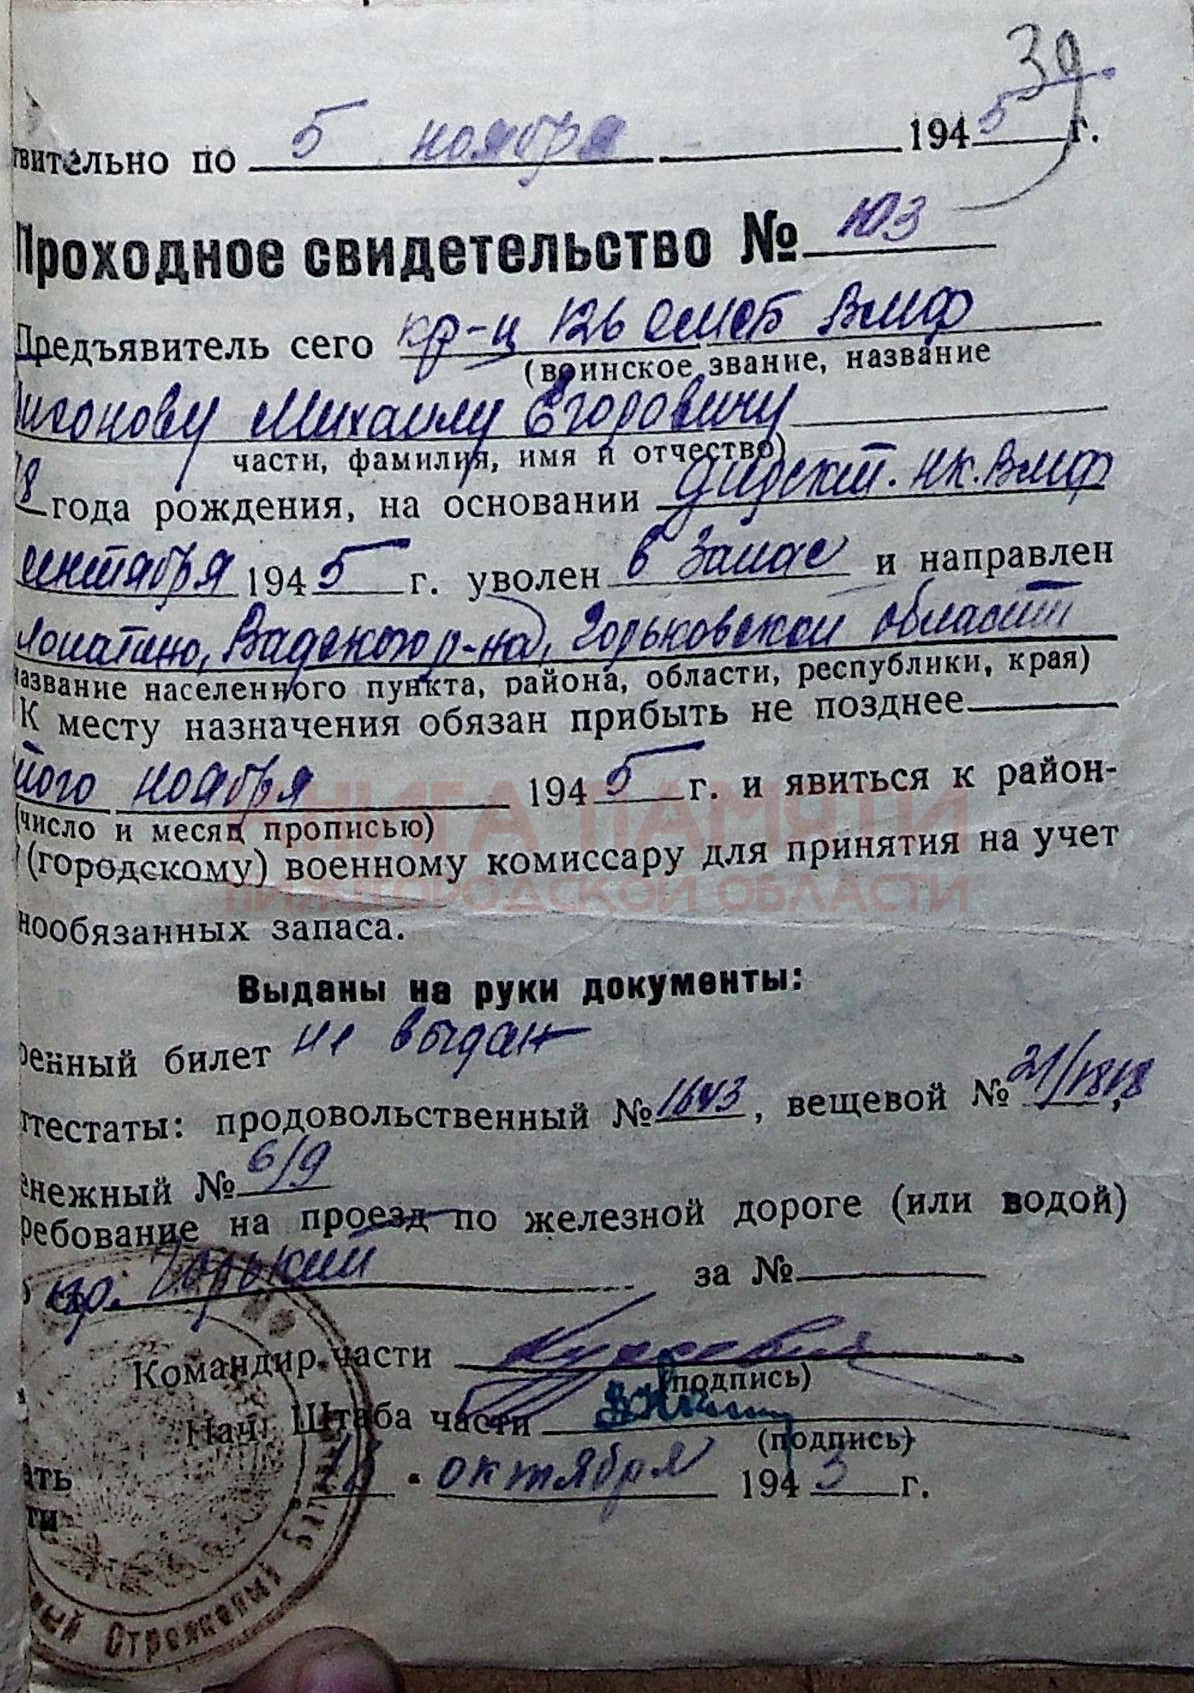 39
твительно по 5 ноября 1945 г.
Проходное свидетельство № 103
Предъявитель сего кр-ц 126 ОМСБ ВМФ
(воинское звание, название
Михаилу Егоровичу
части, фамилия, имя и отчество)
8 года рождения, на основании Н.К. ВМФ
сентября 1945 г. уволен в запас и направлен
Лопатино, Вадского р-на, Горьковской области
название населенного пункта, района, области, республики, края)
К месту назначения обязан прибыть не позднее
ноября 1945 г. и явиться к район-
(число и месяц прописью)
(городскому) военному комиссару для принятия на учет
КНИГА ПАМЯТИ
НИЖЕГОРОДСКОЙ ОБЛАСТИ
нообязанных запаса.
Выданы на руки документы:
оенный билет не выдан
ттестаты: продовольственный № 1643, вещевой № 21/1818,
енежный № 6/9
ребование на проезд по железной дороге (или водой)
гор. Горький за №
Командир части
(подпись)
Нач. Штаба части
(подпись)
октября 1945 г.
ать
ти
ный Стрелковый